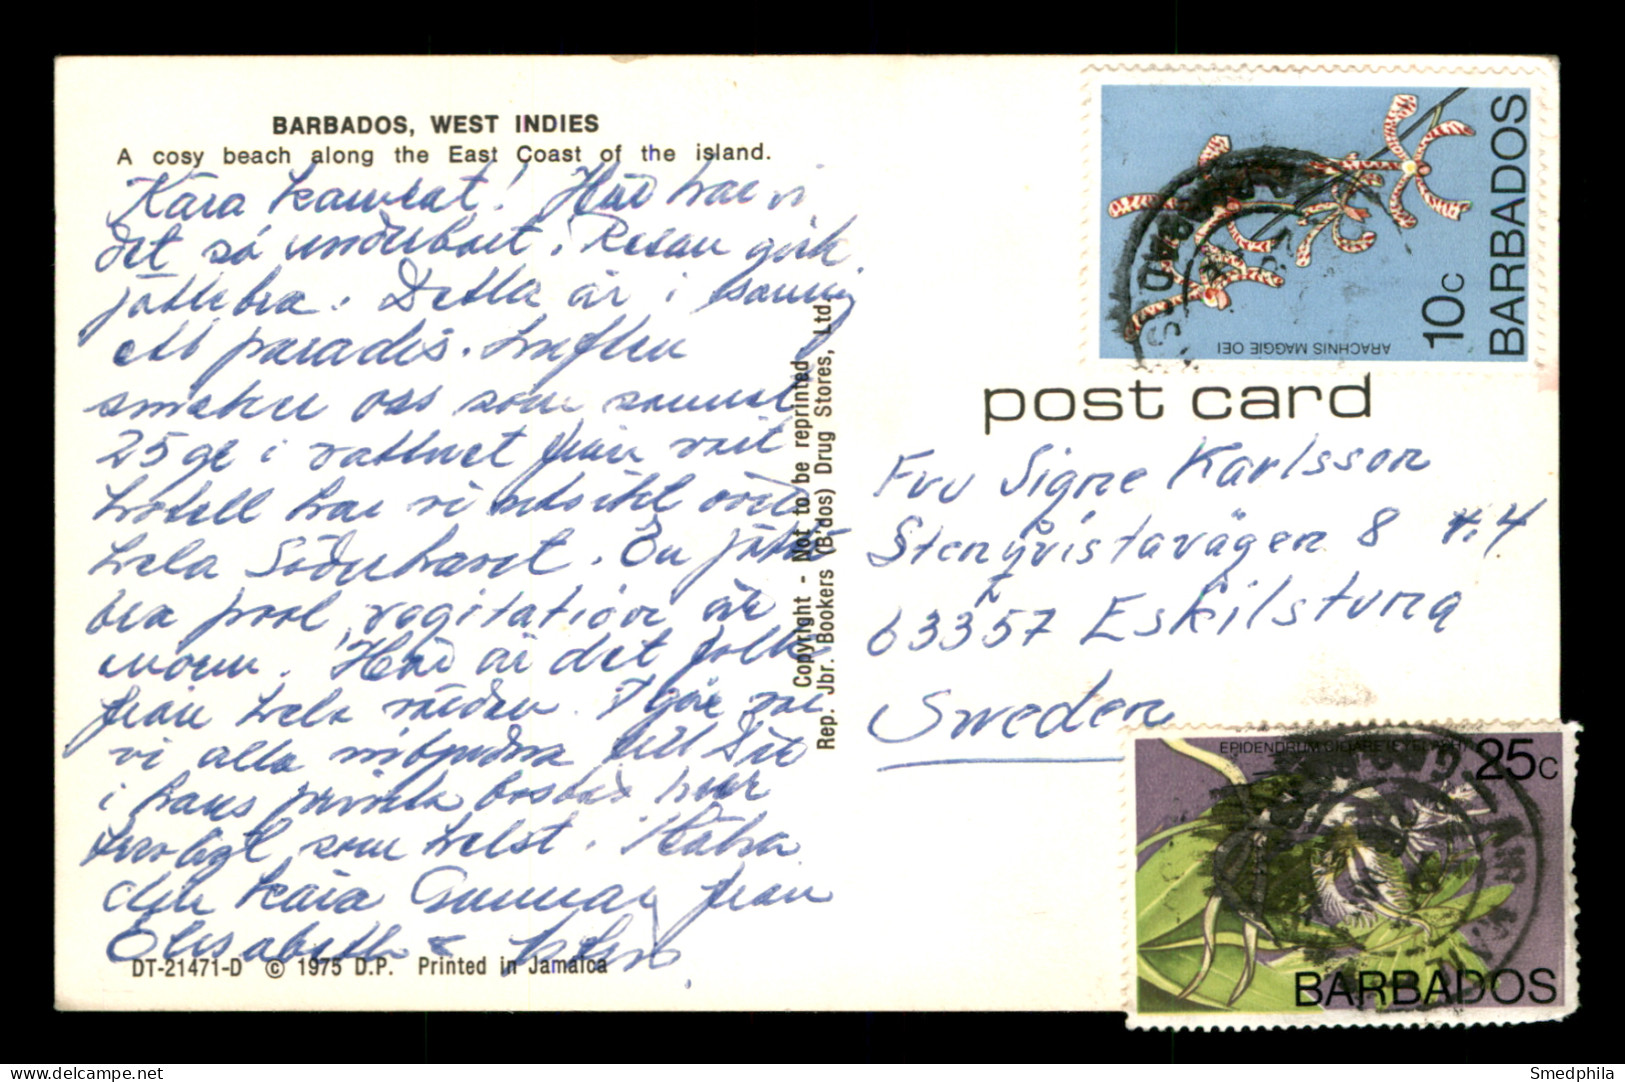 BARBADOS, WEST INDIES
A cosy beach along the East Coast of the island.
Kära kamrat! Här har vi
det så underbart. Resan gick
jättebra. Detta är i sanning
ett paradis. Luften
smeker oss som sammet
25 gr i vattnet från vårt
hotell har vi utsikt över
hela Söderhavet. En jätte
bra pool, vegitation är
enorm. Här är det folk
från hela världen. I går var
vi alla inbjudna till
i hans privata bostad
som helst.
den kära Gunnar från
Elisabeth &
DT-21471-D © 1975 D.P. Printed in Jamaica
Copyright - Not to be reprinted
Rep. Jbr. Bookers (B'dos) Drug Stores, Ltd.
ARACHNIS MAGGIE OEI
10c
BARBADOS
post card
Fru Signe Karlsson
Stenqvistavägen 8 4
63357 Eskilstuna
Sweden
EPIDENDRUM CILIARE
25c
BARBADOS
Smedphila